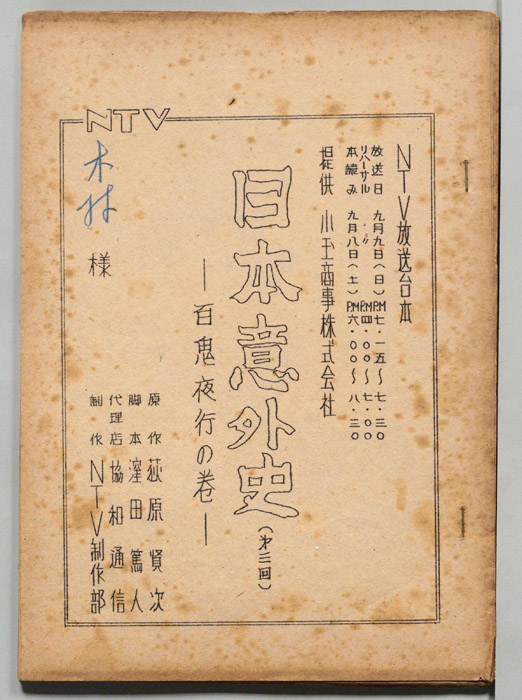 NTV
NTV放送台本
放送日 九月九日(日)PM七・一五〜七・三〇
リハーサル 〃 PM四・〇〇〜七・〇〇
本讀み 九月八日(土)PM六・〇〇〜八・三〇
提供 小玉商事株式会社
日本意外史(第三回)
—百鬼夜行の巻—
原作 荻原賢次
脚本 窪田篤人
代理店 協和通信
制作 NTV制作部
木村様